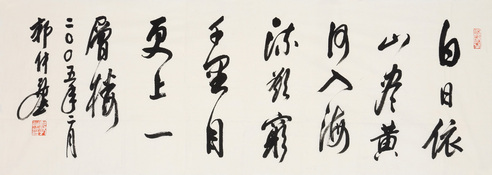 白日依
山尽黄
河入海
流欲穷
千里目
更上一
层楼
二〇〇五年二月